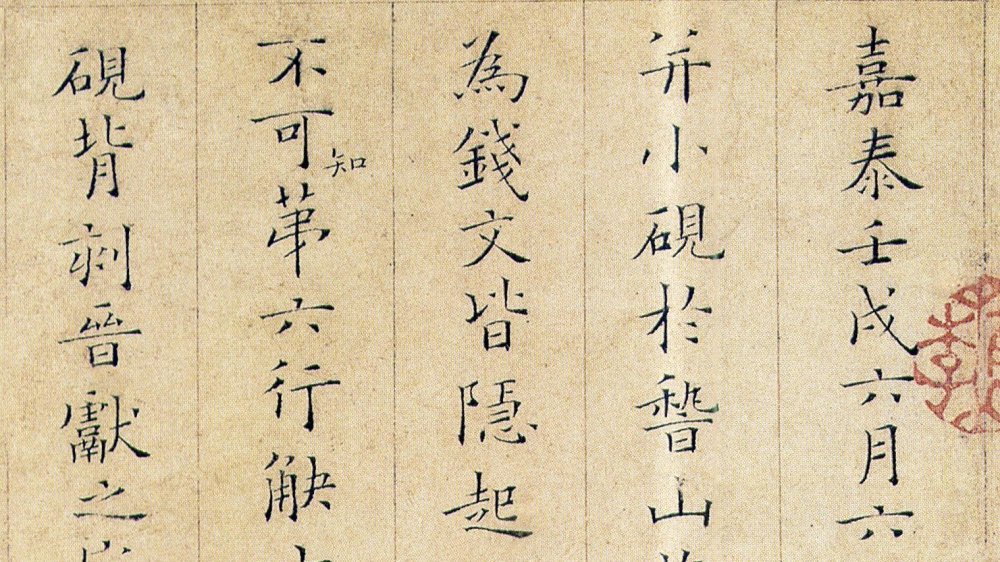 嘉泰壬戌六月六
并小硯於稽山
為錢文皆隱起
不可知苐六行觖
硯背刻晉獻之